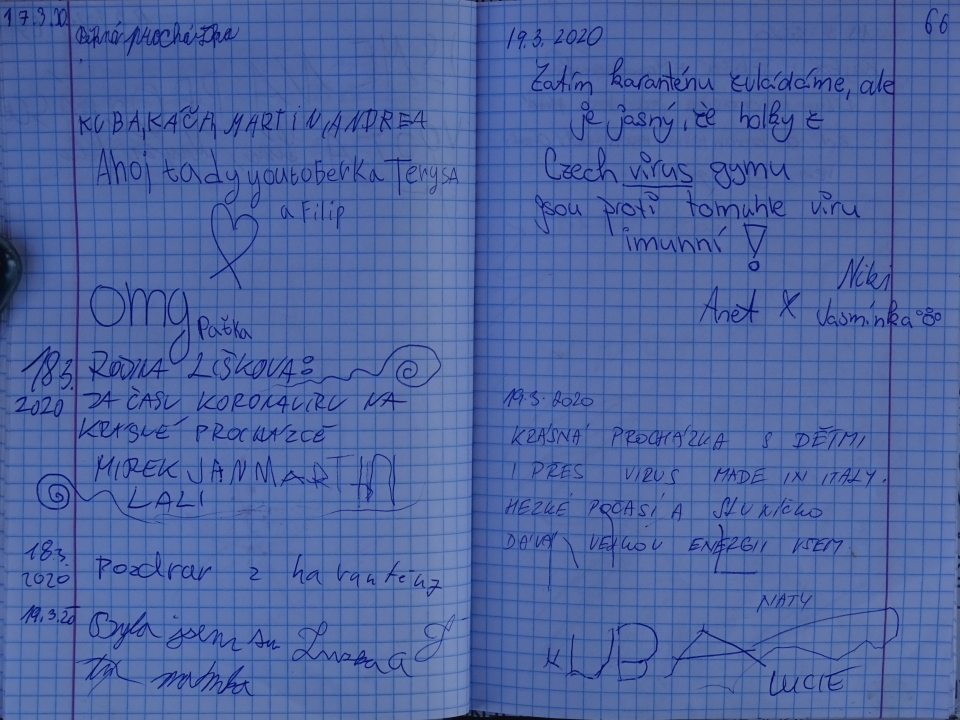 17.3.20
procházka
KUBA, KAČA, MARTIN, ANDREA
Ahoj tady youtoberka Terysa
a Filip
omg Paťka
18.3. RODINA LIŠKOVA
2020 ZA ČASU KORONAVIRU NA
KRÁSNÉ PROCHÁZCE
MIREK JAN MARTIN
LALI
18.3.
2020 Pozdrav z karantény
19.3.20 Byla jsem tu
66
19.3.2020
Zatím karanténu zvládáme, ale
je jasný, že holky z
Czech virus gymu
jsou proti tomuhle viru
imunní !
Niki
Anet X Jasmínka
19.3.2020
KRÁSNÁ PROCHÁZKA S DĚTMI
I PRES VIRUS MADE IN ITALY.
HEZKÉ POČASÍ A SLUNÍČKO
DÁVÁ VELKOU ENERGII VŠEM
NATY
KUBA
LUCIE